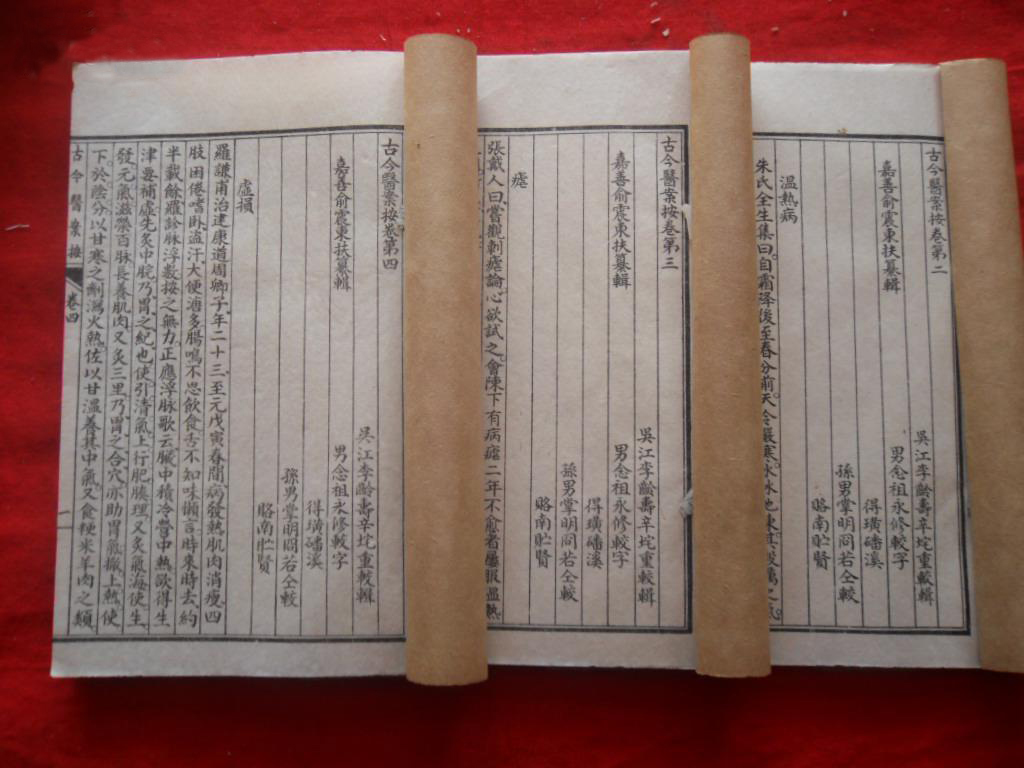 古今醫案按卷第二
嘉善俞震東扶纂輯
吳江李齡壽辛垞重較輯
男念祖永修較字
得璜磻溪
孫男掌明問若仝較
賂南貯賢
溫熱病
朱氏全生集曰自霜降後至春分前天令嚴寒水冰地凍
古今醫案按卷第三
嘉善俞震東扶纂輯
吳江李齡壽辛垞重較輯
男念祖永修較字
得璜磻溪
孫男掌明問若仝較
賂南貯賢
瘧
張戴人曰嘗觀刺瘧論心欲試之會陳下有病瘧二年不愈者屢服溫熱
古今醫案按卷第四
嘉善俞震東扶纂輯
吳江李齡壽辛垞重較輯
男念祖永修較字
得璜磻溪
孫男掌明問若仝較
賂南貯賢
虛損
羅謙甫治建康道周卿子年二十三至元戊寅春間病發熱肌肉消瘦四
肢困倦嗜卧盜汗大便溏多腸鳴不思飲食舌不知味懶言時來時去約
半載餘羅診脉浮數按之無力正應浮脉歌云臟中積冷營中熱欲得生
津要補虛先灸中脘乃胃之紀也使引清氣上行肥腠理又灸氣海使生
發元氣滋榮百脉長養肌肉又灸三里乃胃之合穴亦助胃氣撤上熱使
下於陰分以甘寒之劑瀉火熱佐以甘溫養其中氣又食粳米羊肉之類
古今醫案按
卷四
一